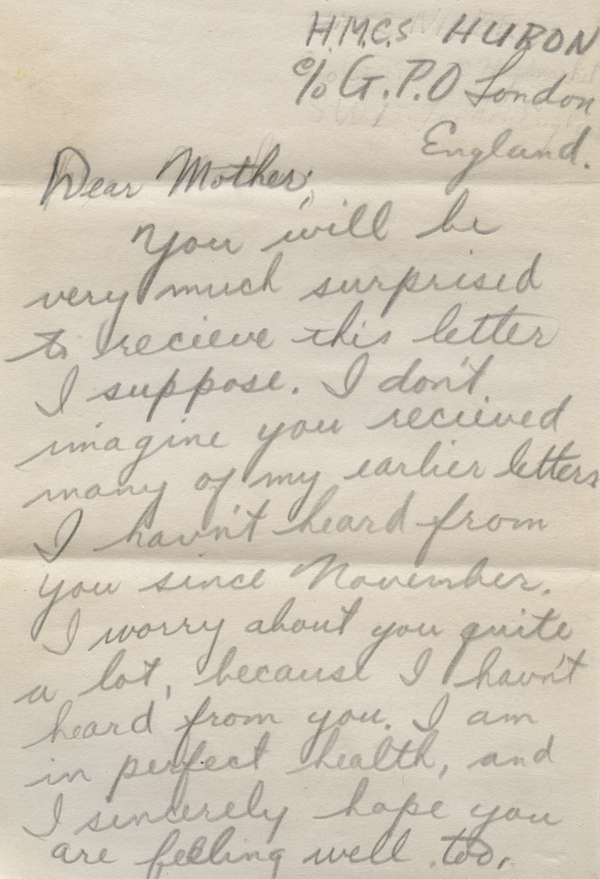 H.M.C.S HURON
c/o G.P.O London
England.
Dear Mother;
You will be
very much surprised
to recieve this letter
I suppose. I don't
imagine you recieved
many of my earlier letters
I havn't heard from
you since November.
I worry about you quite
a lot, because I havn't
heard from you. I am
in perfect health, and
I sincerely hope you
are feeling well too.